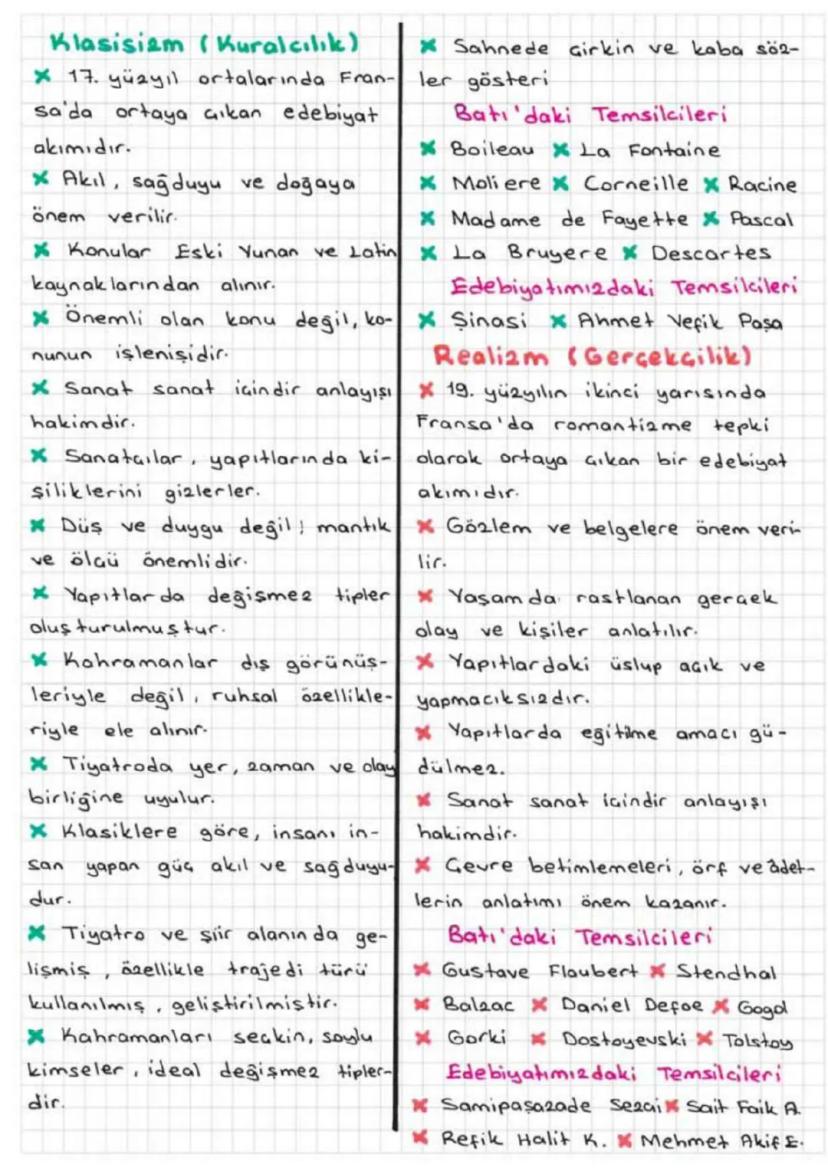 Klasisizm (Kuralcılık)
17. yüzyıl ortalarında Fran-
sa'da ortaya çıkan edebiyat
akımıdır.
Akıl, sağduyu ve doğaya
önem verilir.
Konular Eski Yunan ve Latin
kaynaklarından alınır.
Önemli olan konu değil, ko-
nunun işlenişidir.
Sanat sanat içindir anlayışı
hakimdir.
Sanatçılar, yapıtlarında ki-
şiliklerini gizlerler.
Düş ve duygu değil; mantık
ve ölçü önemlidir.
Yapıtlarda değişmez tipler
oluşturulmuştur.
Kahramanlar dış görünüş-
leriyle değil, ruhsal özellikle-
riyle ele alınır.
Tiyatroda yer, zaman ve olay
birliğine uyulur.
Klasiklere göre, insanı in-
san yapan güç akıl ve sağduyu-
dur.
Tiyatro ve şiir alanında ge-
lişmiş, özellikle trajedi türü
kullanılmış, geliştirilmiştir.
Kahramanları seçkin, soylu
kimseler, ideal değişmez tipler-
dir.
Sahnede çirkin ve kaba söz-
ler gösteri
Batı'daki Temsilcileri
Boileau La Fontaine
Moliere Corneille Racine
Madame de Fayette Pascal
La Bruyere Descartes
Edebiyatımızdaki Temsilcileri
Şinasi Ahmet Vefik Paşa
Realizm (Gerçekçilik)
19. yüzyılın ikinci yarısında
Fransa'da romantizme tepki
olarak ortaya çıkan bir edebiyat
akımıdır.
Gözlem ve belgelere önem veri-
lir.
Yaşamda rastlanan gerçek
olay ve kişiler anlatılır.
Yapıtlardaki üslup açık ve
yapmacıksızdır.
Yapıtlarda eğitme amacı gü-
dülmez.
Sanat sanat içindir anlayışı
hakimdir.
Çevre betimlemeleri, örf ve âdet-
lerin anlatımı önem kazanır.
Batı'daki Temsilcileri
Gustave Flaubert Stendhal
Balzac Daniel Defoe Gogol
Gorki Dostoyevski Tolstoy
Edebiyatımızdaki Temsilcileri
Samipaşazade Sezai Sait Faik A.
Refik Halit K. Mehmet Akif E.